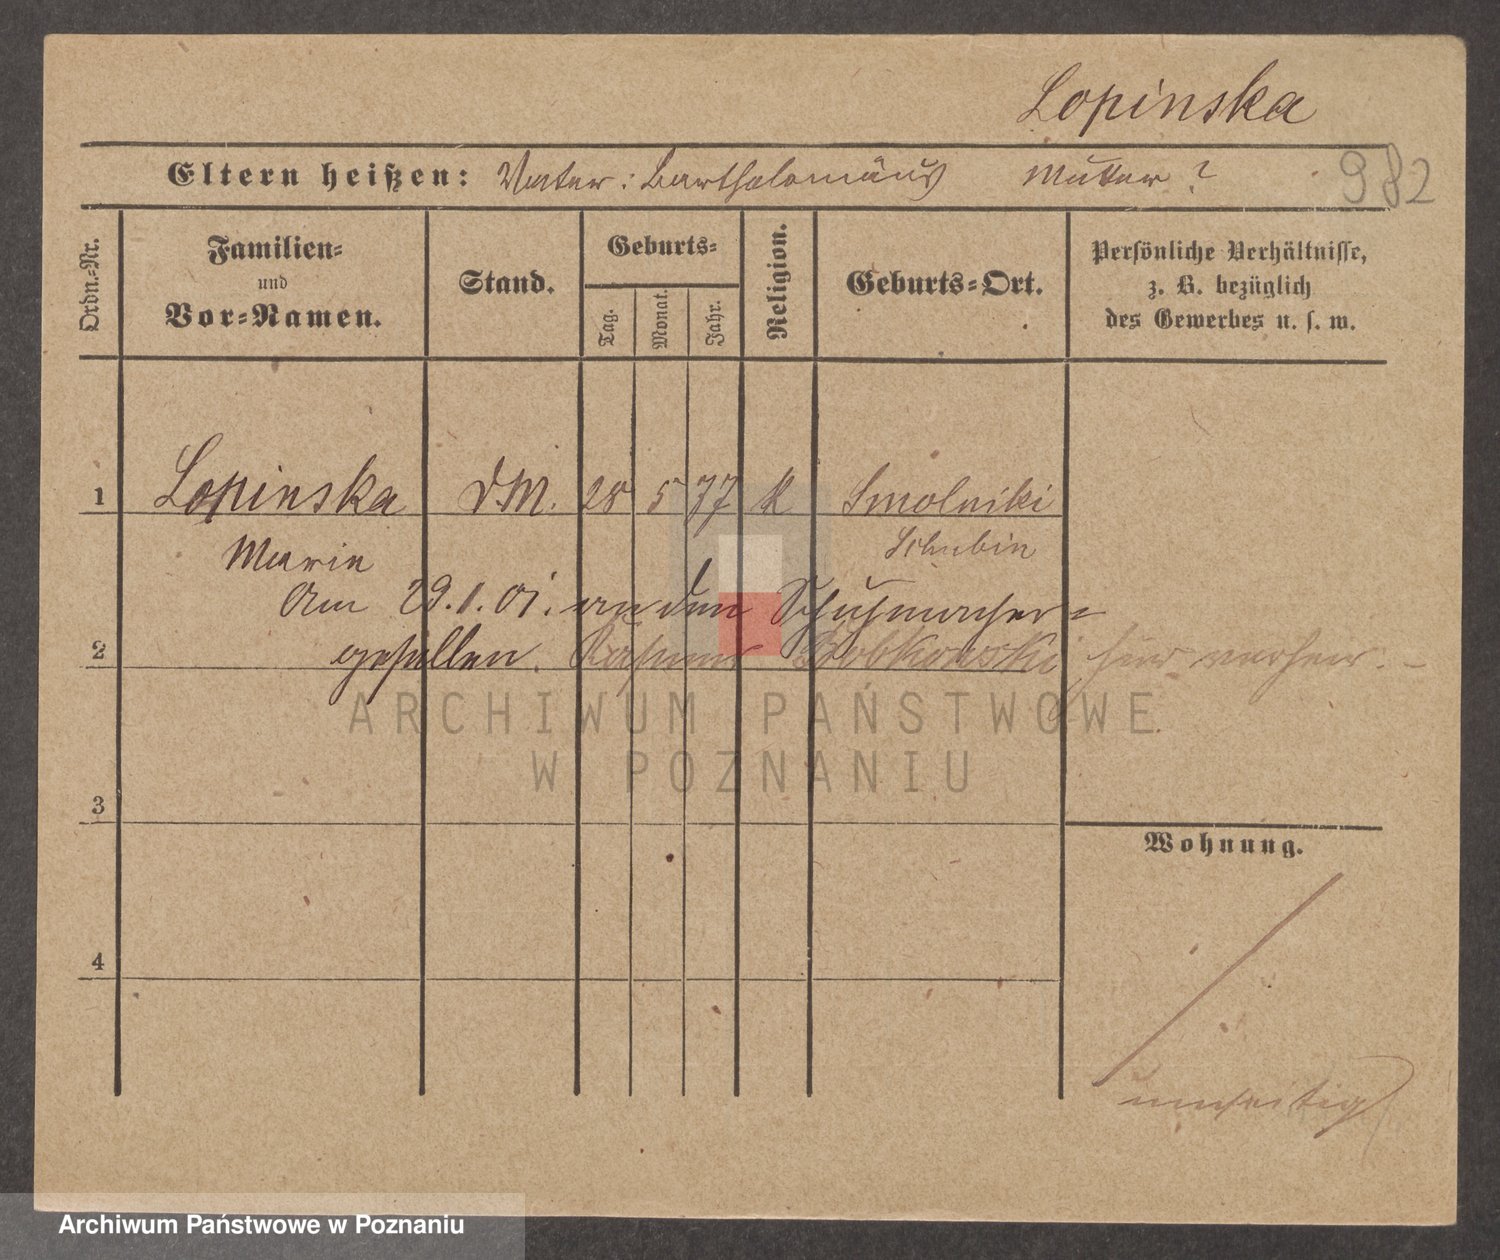 Lopinska
Eltern heißen: Vater: Bartholomäus Mutter ?
982
Ordn.-Nr.
Familien-
und
Vor-Namen.
Stand.
Geburts-
Tag.
Monat.
Jahr.
Religion.
Geburts-Ort.
Persönliche Verhältnisse,
z. B. bezüglich
des Gewerbes u. s. w.
1 Lopinska D.M. 28 5 77 k Smolniki
Marie Schubin
Am 29.1.01. an den Schuhmacher-
2 gesellen. Bobkowski hier verheir.
ARCHIWUM PAŃSTWOWE
W POZNANIU
3
Wohnung.
4
umseitig
Archiwum Państwowe w Poznaniu